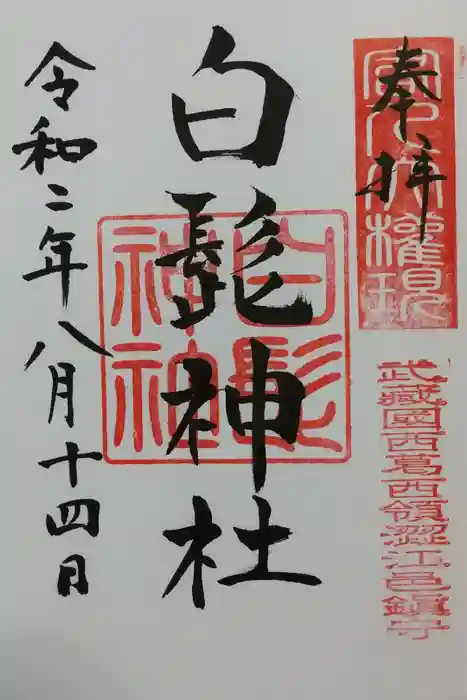 奉拝
客人大權現
武藏國西葛西領澀江邑鎮守
白髭神社
白髭
神社
令和二年八月十四日